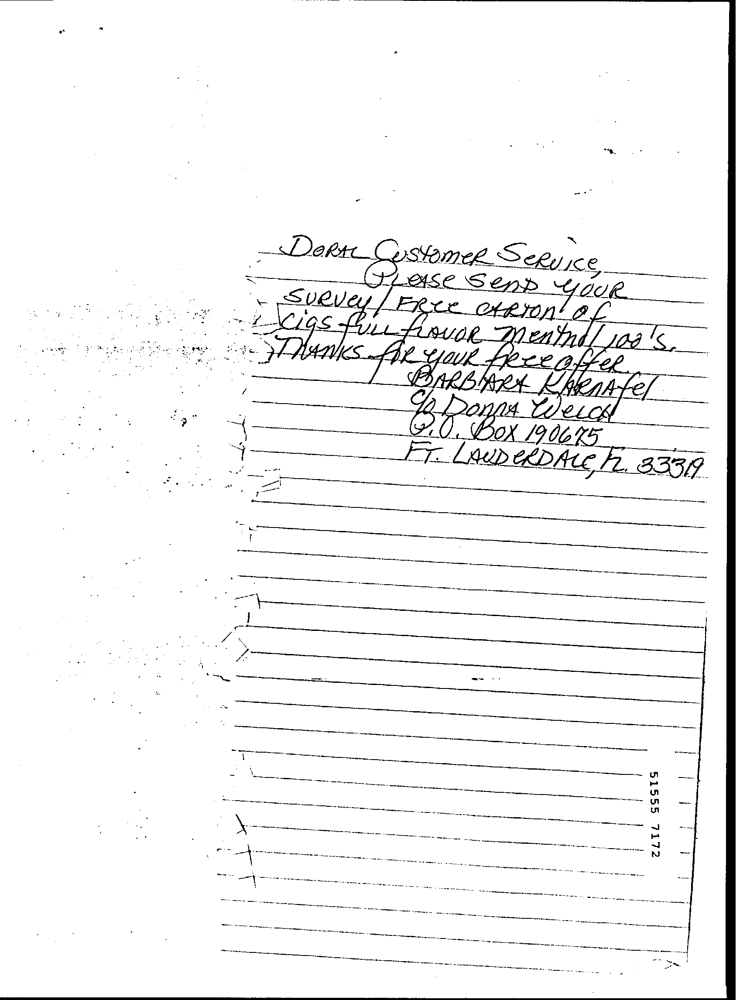 Doral Customer Service,
Please send your
survey / Free carton of
cigs full flavor menthol 100's.
Thanks for your free offer
Barbara Karnafel
c/o Donna Welch
P.O. Box 190675
Ft. Lauderdale, Fl. 33319
51555 7172